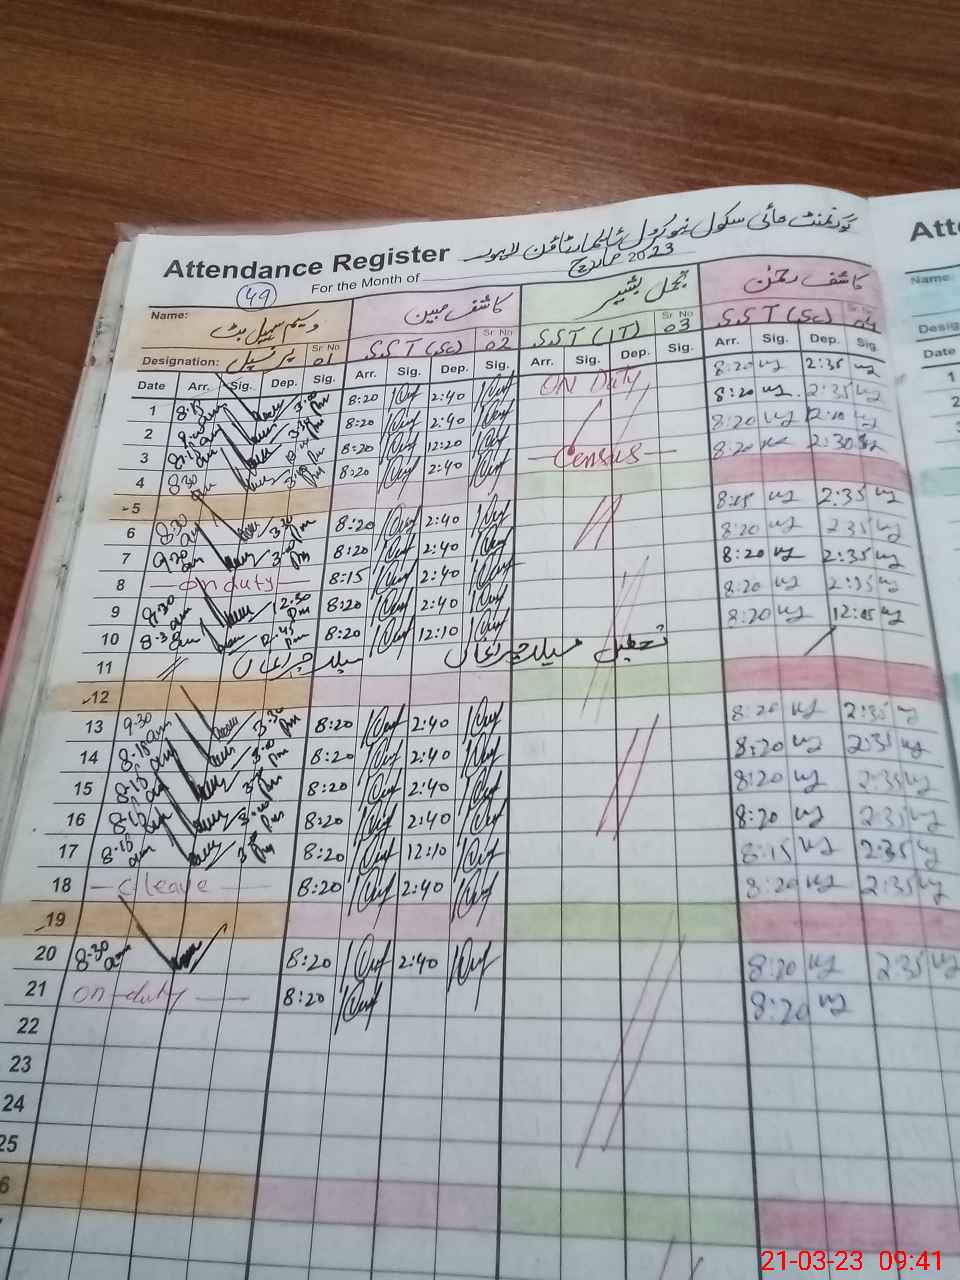 گورنمنٹ ہائی سکول نیو رول شالیمار ٹاؤن لاہور
Attendance Register
For the Month of مارچ 2023
49
Name: وسیم سہیل بٹ کاشف مبین تجمل بشیر کاشف رحمٰن
Designation: پرنسپل Sr No 01 Sr No 02 Sr No 03 Sr No 04
Date Arr. Sig. Dep. Sig. Arr. Sig. Dep. Sig. Arr. Sig. Dep. Sig. Arr. Sig. Dep. Sig.
1 8:15 3:00 pm 8:20 2:40 ON Duty 8:20 2:35
2 8:20 2:40 8:20 2:35
3 8:20 12:20 8:20
4 8:30 8:20 2:40 Census 8:20 2:30
5
6 8:30 3:30 pm 8:20 2:40 8:15 2:35
7 9:20 am 3:00 pm 8:20 2:40 8:20 2:35
8 on duty 8:15 2:40 8:20 2:35
9 8:30 am 12:30 pm 8:20 2:40 8:20 2:35
10 8:30 am 12:45 pm 8:20 12:10 8:20 12:05
11 میلہ چراغاں تعطیل میلہ چراغاں
12
13 9:30 am 3:30 pm 8:20 2:40 8:20 2:35
14 8:15 am 3:00 pm 8:20 2:40 8:20 2:35
15 8:15 am pm 8:20 2:40 8:20 2:35
16 8:15 am 3:00 pm 8:20 2:40 8:20 2:35
17 8:15 am 3:00 pm 8:20 12:10 8:15 2:35
18 C leave 8:20 2:40 8:20 2:35
19
20 8:30 am 8:20 2:40 8:20 2:35
21 on duty 8:20 8:20
22
23
24
25
6
Atte
Name:
Desig
Date
1
2
21-03-23 09:41